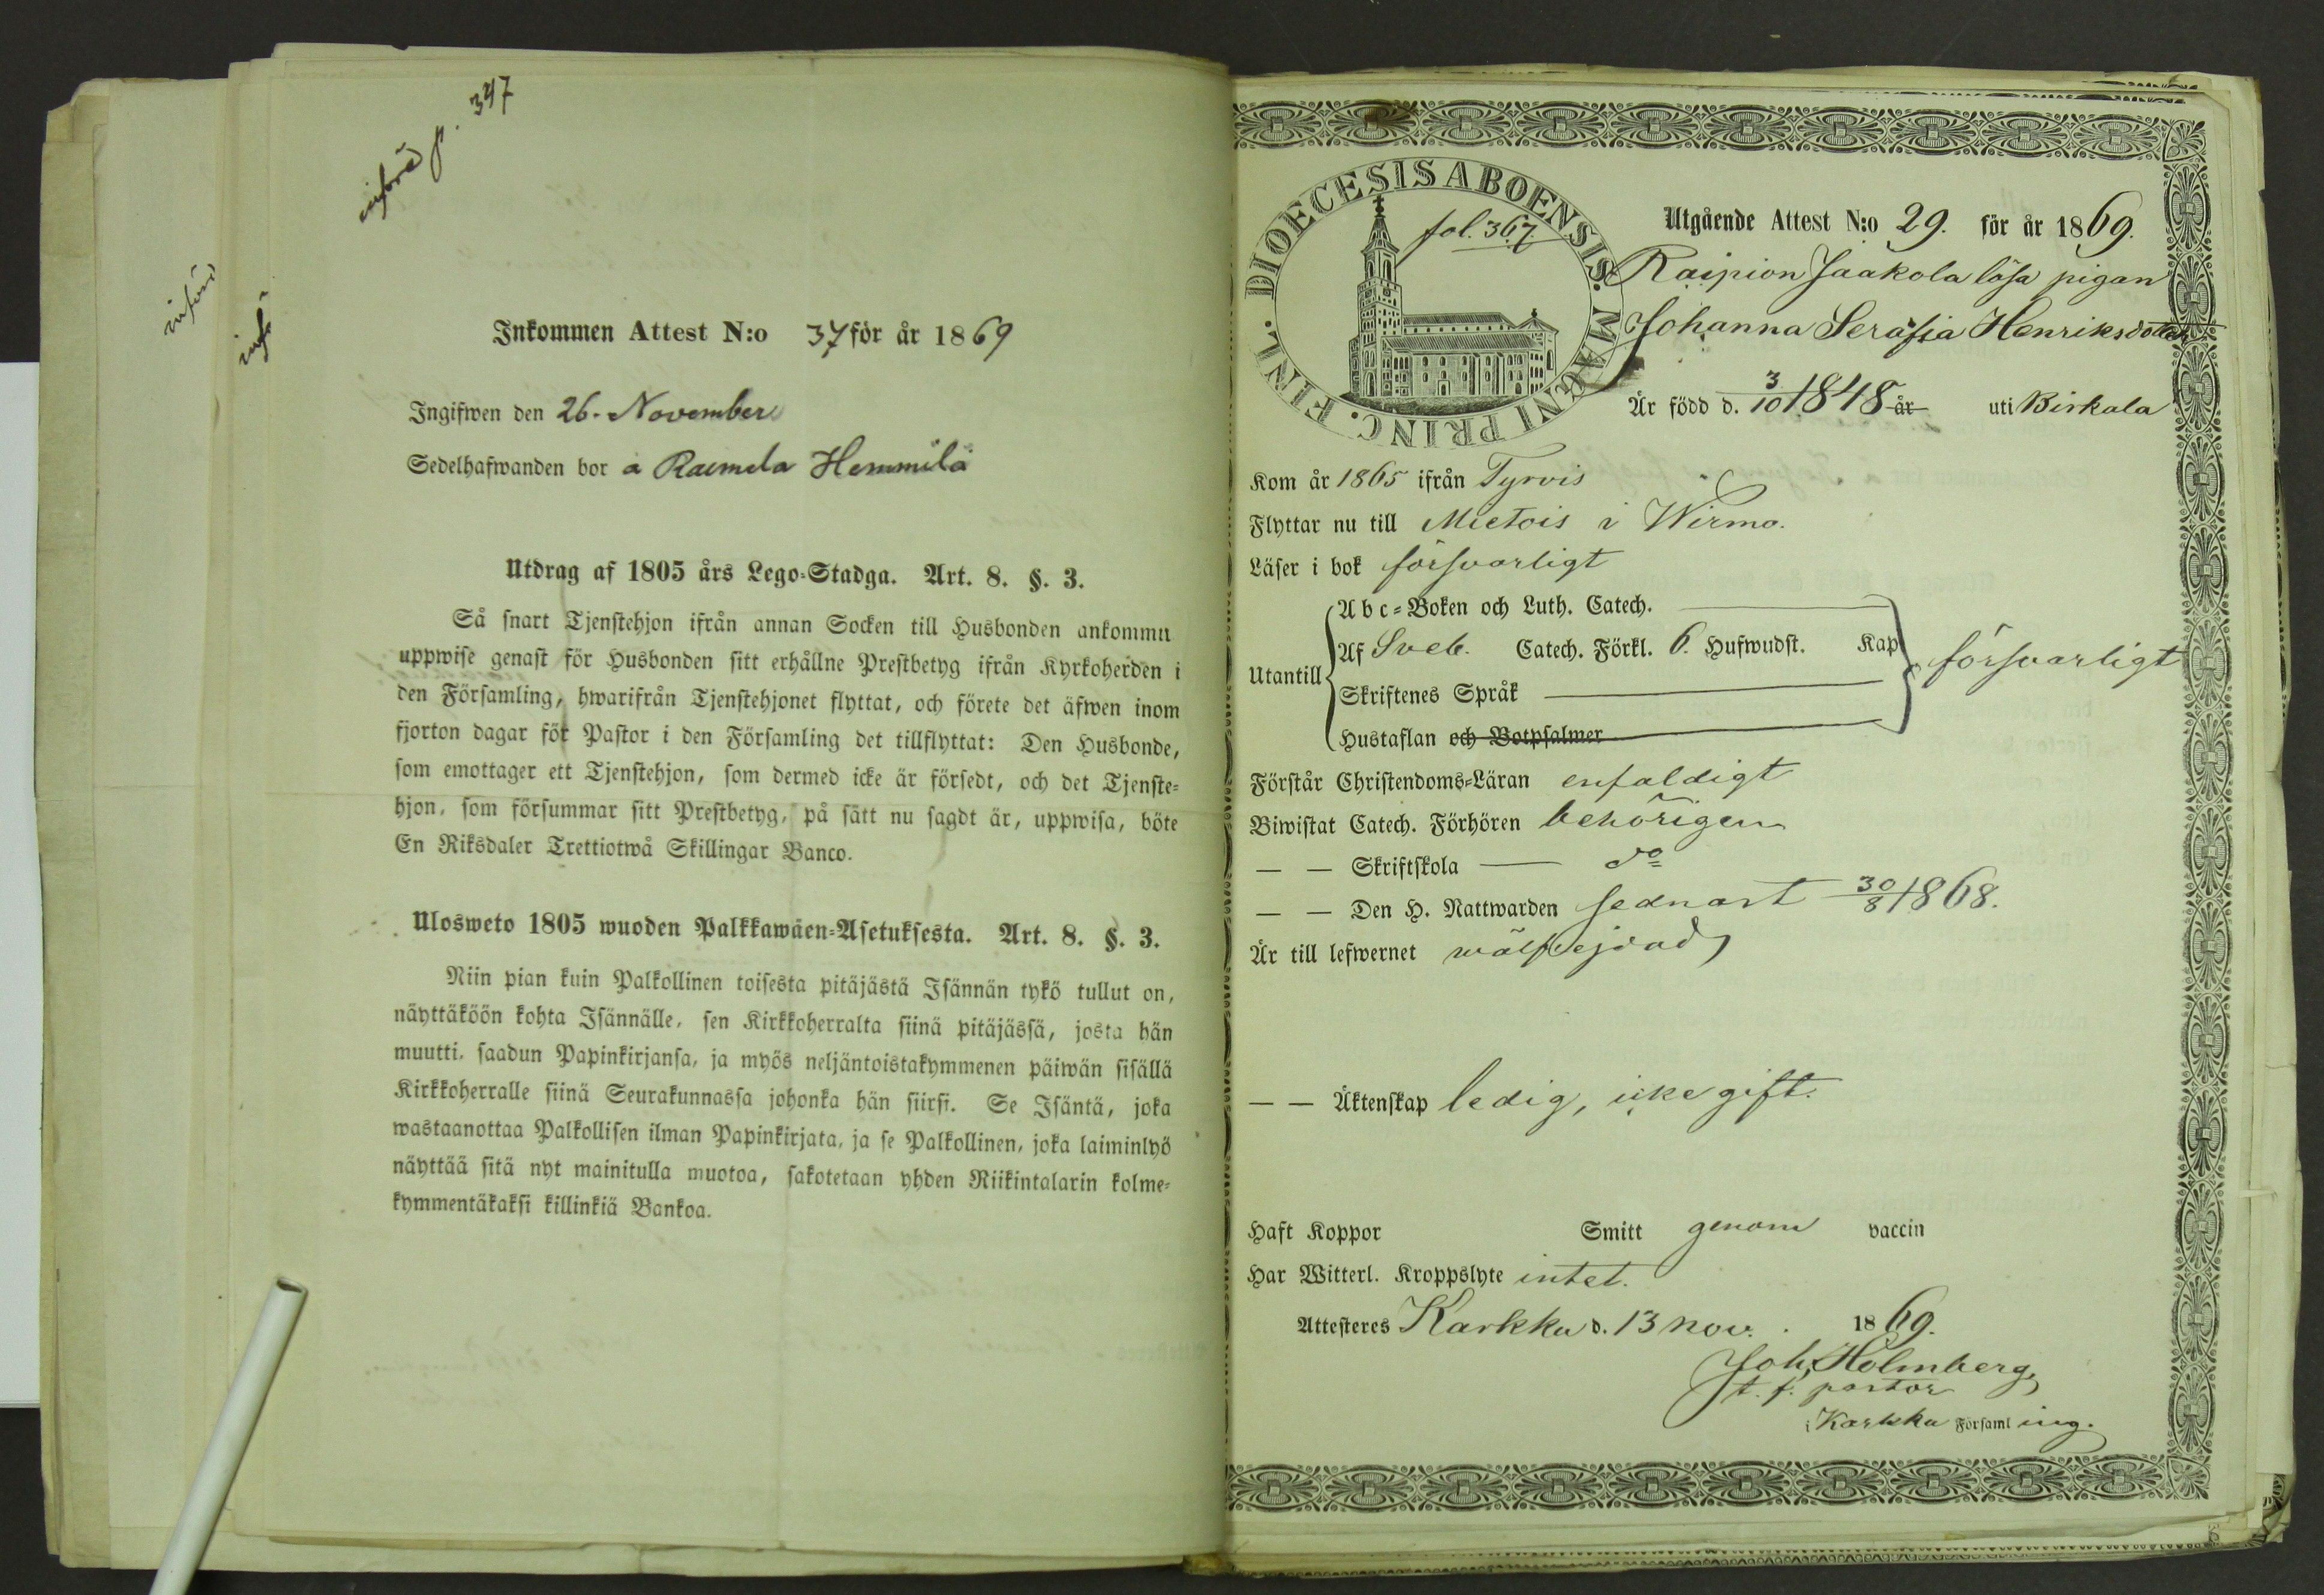 införd p. 347
införd
inf
Inkommen Attest N:o 37 för år 1869
Ingifwen den 26. November
Sedelhafwanden bor å Raimela Hemmilä
Utdrag af 1805 års Lego-Stadga. Art. 8. §. 3.
Så snart Tjenstehjon ifrån annan Socken till Husbonden ankommit
uppwise genast för Husbonden sitt erhållne Prestbetyg ifrån Kyrkoherden i
den Församling, hwarifrån Tjenstehjonet flyttat, och förete det äfwen inom
fjorton dagar för Pastor i den Församling det tillflyttat: Den Husbonde,
som emottager ett Tjenstehjon, som dermed icke är försedt, och det Tjenste-
hjon, som försummar sitt Prestbetyg, på sätt nu sagdt är, uppwisa, böte
En Riksdaler Trettiotwå Skillingar Banco.
Ulosweto 1805 wuoden Palkkawäen-Asetuksesta. Art. 8. §. 3.
Niin pian kuin Palkollinen toisesta pitäjästä Isännän tykö tullut on,
näyttäköön kohta Isännälle, sen Kirkkoherralta siinä pitäjässä, josta hän
muutti, saadun Papinkirjansa, ja myös neljäntoistakymmenen päiwän sisällä
Kirkkoherralle siinä Seurakunnassa johonka hän siirsi. Se Isäntä, joka
wastaanottaa Palkollisen ilman Papinkirjata, ja se Palkollinen, joka laiminlyö
näyttää sitä nyt mainitulla muotoa, sakotetaan yhden Riikintalarin kolme-
kymmentäkaksi killinkiä Bankoa.
DIOECESIS ABOENSIS. MAGNI PRINC. FINL.
fol. 367.
Utgående Attest N:o 29. för år 1869.
Raipion Jaakola lösa pigan
Johanna Serafia Henriksdotter
Är född d. 3/10 1848 år uti Birkala
Kom år 1865 ifrån Tyrvis
Flyttar nu till Mietois i Wirmo.
Läser i bok försvarligt
Utantill
Abc-Boken och Luth. Catech.
Af Sveb. Catech. Förkl. 6. Hufwudst. Kap försvarligt
Skriftenes Språk
Hustaflan och Botpsalmer
Förstår Christendoms-Läran enfaldigt
Biwistat Catech. Förhören behörigen
— — Skriftskola — do
— — Den H. Nattwarden sednast 30/8 1868.
Är till lefwernet wälfrejdad
— — Äktenskap ledig, icke gift.
Haft Koppor Smitt genom vaccin
Har Witterl. Kroppslyte intet.
Attesteres Karkku d. 13 nov. 1869.
Joh. Holmberg,
t. f. pastor
i Karkku Församling.